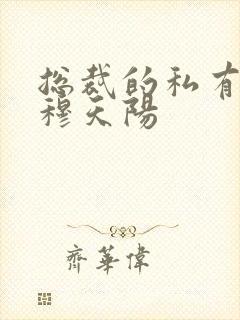 总裁的私有
穆天陽
齊華偉